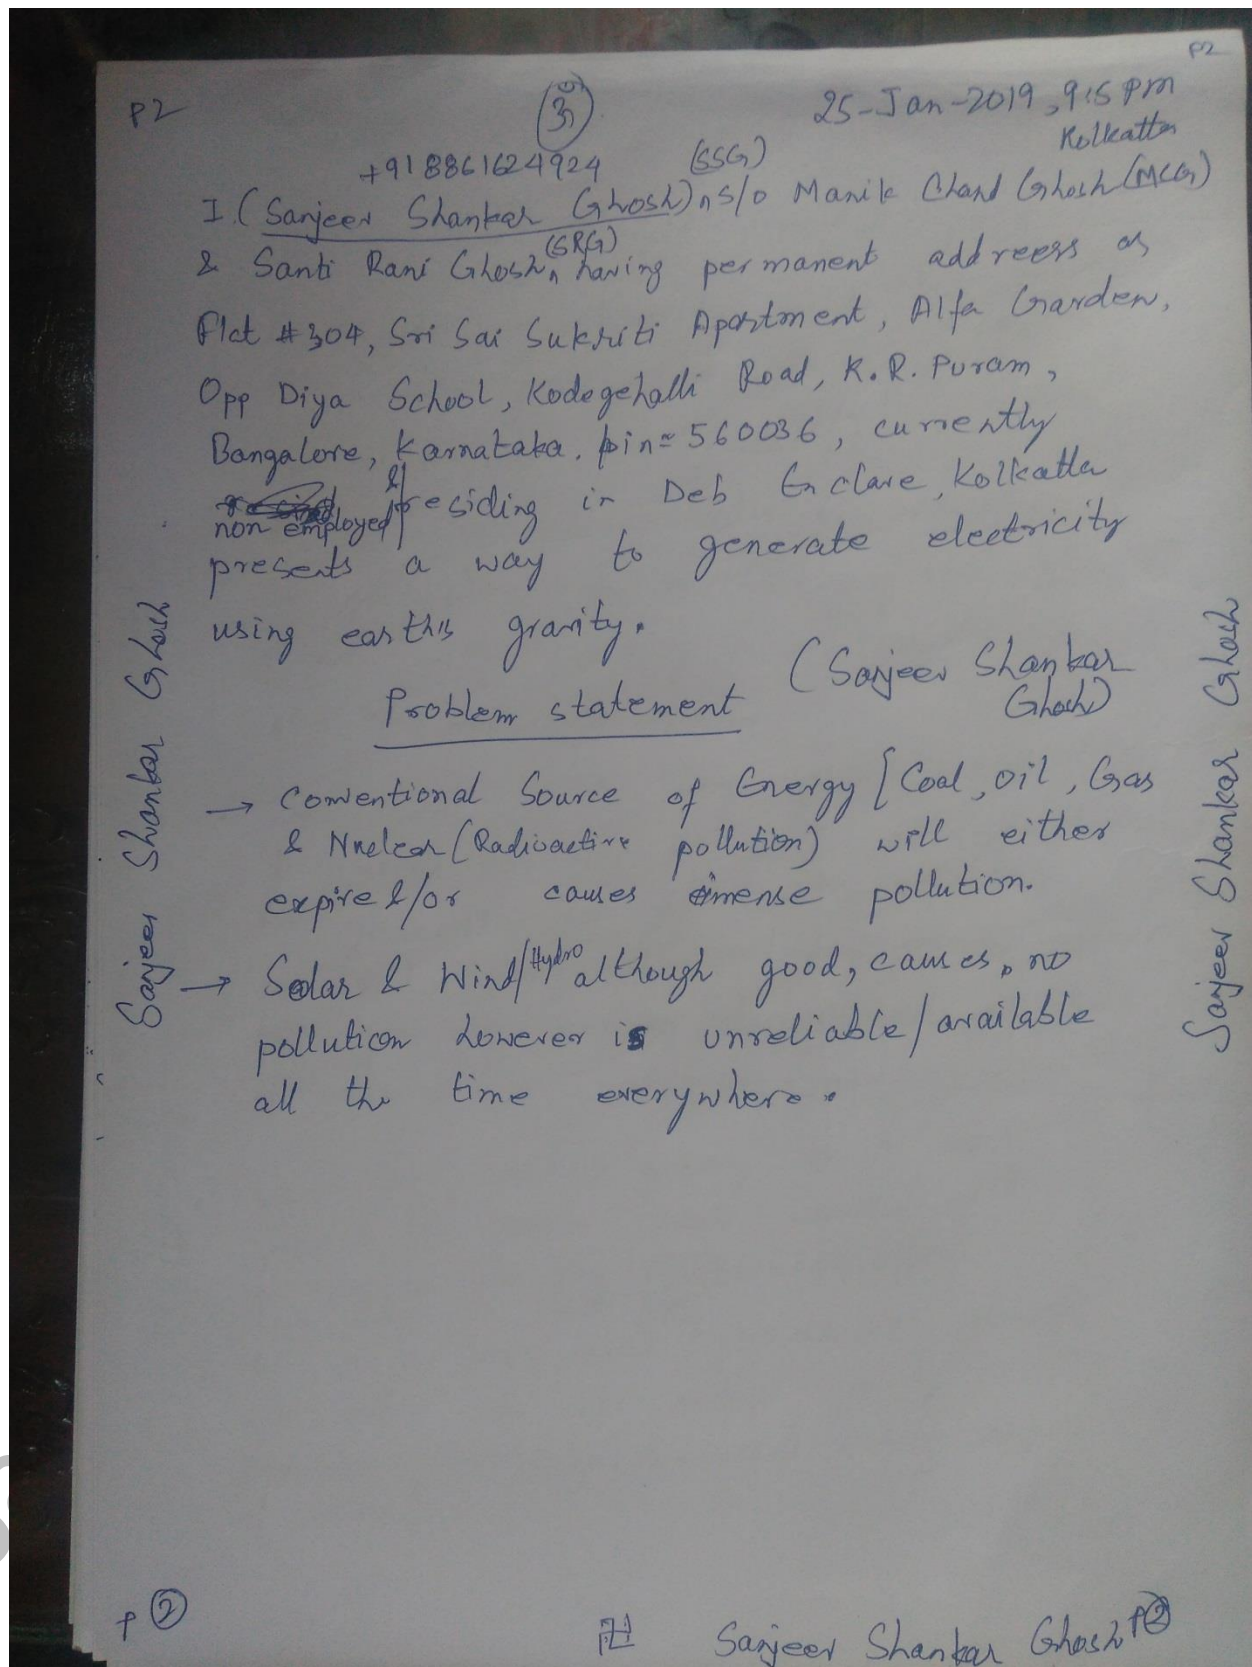 P2
P2
ॐ
25-Jan-2019, 9:15 PM
Kolkatta
+918861624924
(SSG)
I (Sanjeev Shankar Ghosh) S/o Manik Chand Ghosh (MCG)
(SRG)
& Santi Rani Ghosh, having permanent addreess as
Flat #304, Sri Sai Sukriti Apartment, Alfa Garden,
Opp Diya School, Kodegehalli Road, K.R. Puram,
Bangalore, Karnataka. pin=560036, currently
non employed & residing in Deb Enclave, Kolkatta
presents a way to generate electricity
using earths gravity.
(Sanjeev Shankar
Ghosh)
Problem statement
→ Conventional Source of Energy [Coal, oil, Gas
& Nuclear (Radioactive pollution) will either
expire &/or causes imense pollution.
→ Solar & Wind/Hydro although good, causes, no
pollution however is unreliable/available
all the time everywhere.
Sanjeev Shankar Ghosh
Sanjeev Shankar Ghosh
P 2
卐
Sanjeev Shankar Ghosh P2